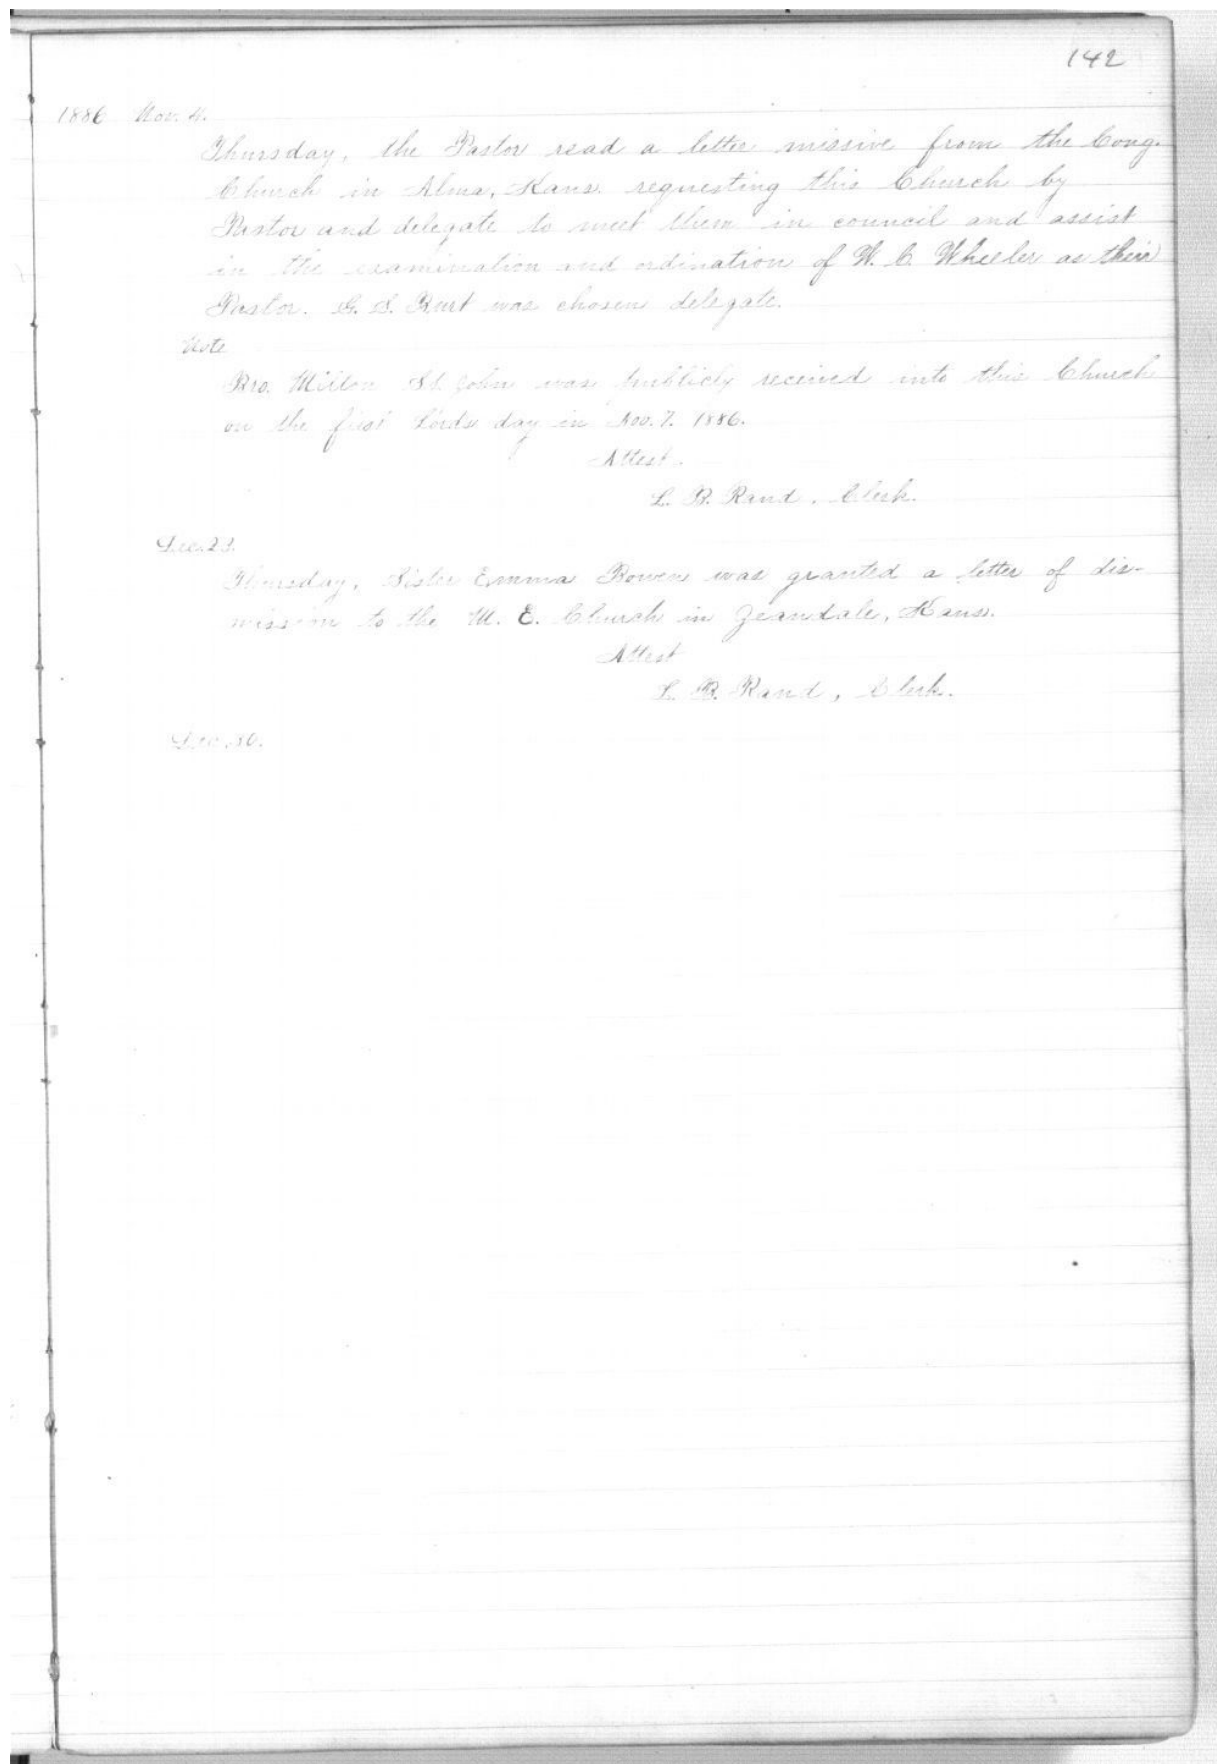 142
1886 Nov. 4.
Thursday, the Pastor read a letter missive from the Cong.
Church in Alma, Kans. requesting this Church by
Pastor and delegate to meet them in council and assist
in the examination and ordination of W. C. Wheeler as their
Pastor. G. S. Burt was chosen delegate.
Note
Bro. Milton St. John was publicly received into this Church
on the first Lords day in Nov. 7. 1886.
Attest.
L. B. Rand, Clerk.
Dec. 23.
Thursday, Sister Emma Bowen was granted a letter of dis-
mission to the M. E. Church in Zeandale, Kans.
Attest
L. B. Rand, Clerk.
Dec. 30.